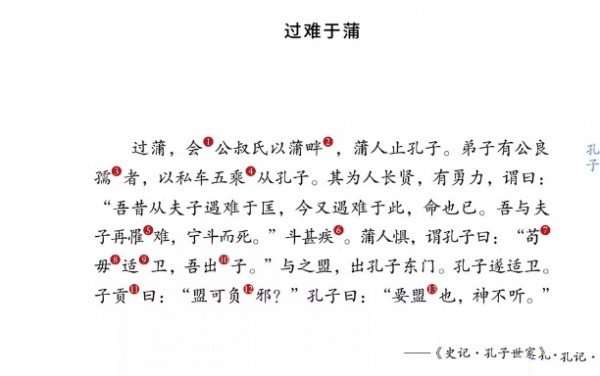 过难于蒲
过蒲，会❶公叔氏以蒲畔❷，蒲人止孔子。弟子有公良
孺❸者，以私车五乘❹从孔子。其为人长贤，有勇力，谓曰：
“吾昔从夫子遇难于匡，今又遇难于此，命也已。吾与夫
子再罹❺难，宁斗而死。”斗甚疾❻。蒲人惧，谓孔子曰：“苟❼
毋❽适❾卫，吾出❿子。”与之盟，出孔子东门。孔子遂适卫。
子贡⓫曰：“盟可负⓬邪？”孔子曰：“要盟⓭也，神不听。”
——《史记·孔子世家》孔·孔记·
孔
子